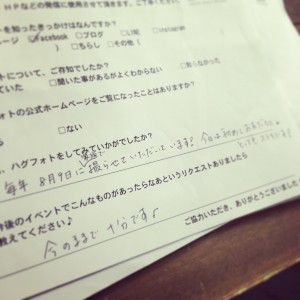 HPなどの発信に使用させて頂きます。ご了承ください
を知ったきっかけはなんですか?
ページ ☑Facebook □ブログ □LINE □instagram
) □ちらし □その他(
トについて、ご存知でしたか?
ていた □聞いた事があるがよくわからない □知らなかった
フォトの公式ホームページをご覧になったことはありますか?
□ない
、ハグフォトをしてみていかがでしたか?
家族で
毎年 8月9日に撮らせていただいています! 今日は初めに
とっても
今後のイベントでこんなものがあったらなあというリクエストありましたら
教えてください♪
今のままで十分です♪
ご協力いただき、ありがとうございました